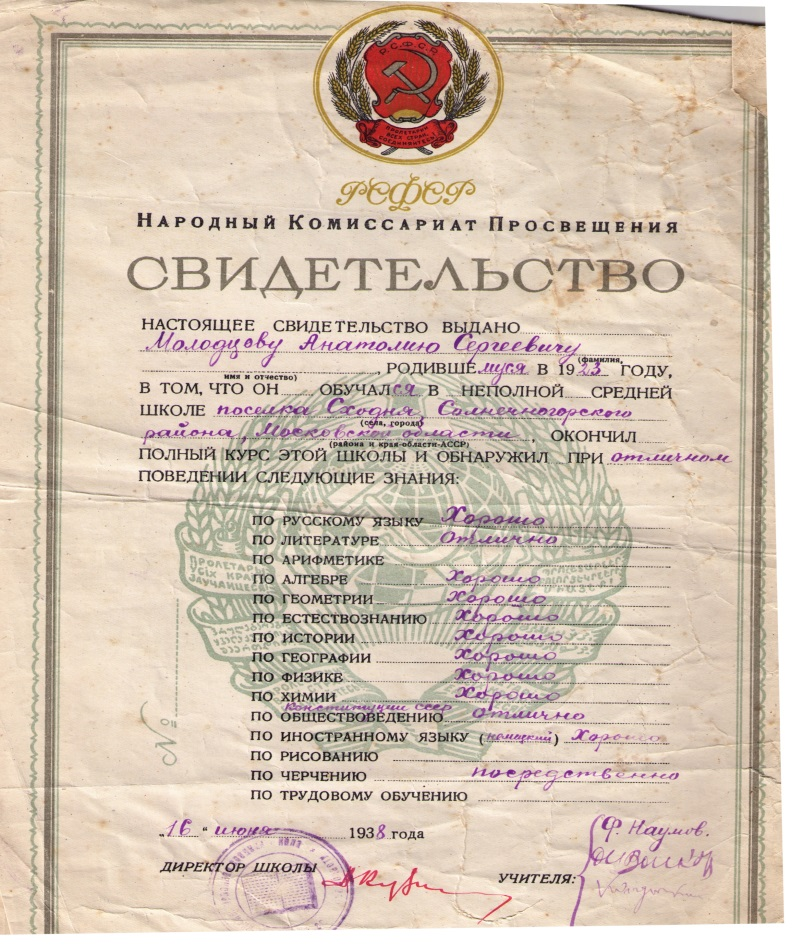 Р.С.Ф.С.Р.
ПРОЛЕТАРИИ
ВСЕХ СТРАН,
СОЕДИНЯЙТЕСЬ!
РСФСР
НАРОДНЫЙ КОМИССАРИАТ ПРОСВЕЩЕНИЯ
СВИДЕТЕЛЬСТВО
НАСТОЯЩЕЕ СВИДЕТЕЛЬСТВО ВЫДАНО
Молодцову Анатолию Сергеевичу
(фамилия,
, РОДИВШЕмуся В 1923 ГОДУ,
имя и отчество)
В ТОМ, ЧТО ОН ОБУЧАЛся В НЕПОЛНОЙ СРЕДНЕЙ
ШКОЛЕ поселка Сходня, Солнечногорского
(села, города)
района, Московской области, ОКОНЧИЛ
(района и края-области-АССР)
ПОЛНЫЙ КУРС ЭТОЙ ШКОЛЫ И ОБНАРУЖИЛ ПРИ отличном
ПОВЕДЕНИИ СЛЕДУЮЩИЕ ЗНАНИЯ:
ПО РУССКОМУ ЯЗЫКУ Хорошо
ПО ЛИТЕРАТУРЕ Отлично
ПО АРИФМЕТИКЕ
ПО АЛГЕБРЕ Хорошо
ПО ГЕОМЕТРИИ Хорошо
ПО ЕСТЕСТВОЗНАНИЮ Хорошо
ПО ИСТОРИИ Хорошо
ПО ГЕОГРАФИИ Хорошо
ПО ФИЗИКЕ Хорошо
ПО ХИМИИ Хорошо
Конституции СССР
ПО ОБЩЕСТВОВЕДЕНИЮ отлично
ПО ИНОСТРАННОМУ ЯЗЫКУ (немецкий) Хорошо
ПО РИСОВАНИЮ
ПО ЧЕРЧЕНИЮ посредственно
ПО ТРУДОВОМУ ОБУЧЕНИЮ
№
„16" июня 1938 года
ДИРЕКТОР ШКОЛЫ
УЧИТЕЛЯ:
Ф. Наумов.